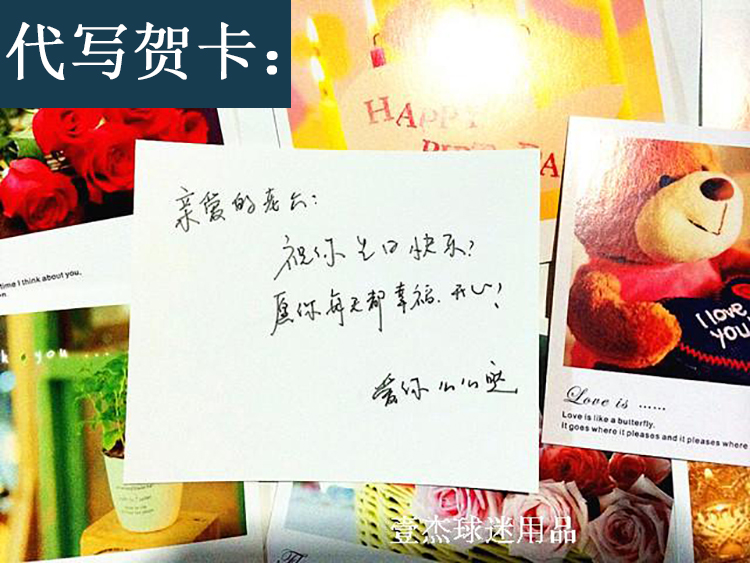 代写贺卡:
HAPPY
BIRTHDA
亲爱的老公:
祝你生日快乐!
愿你每天都幸福.开心!
爱你
time I think about you,
on.
k you ...
I love
you!
Love is ......
Love is like a butterfly.
It goes where it pleases and it pleases where
壹杰球迷用品